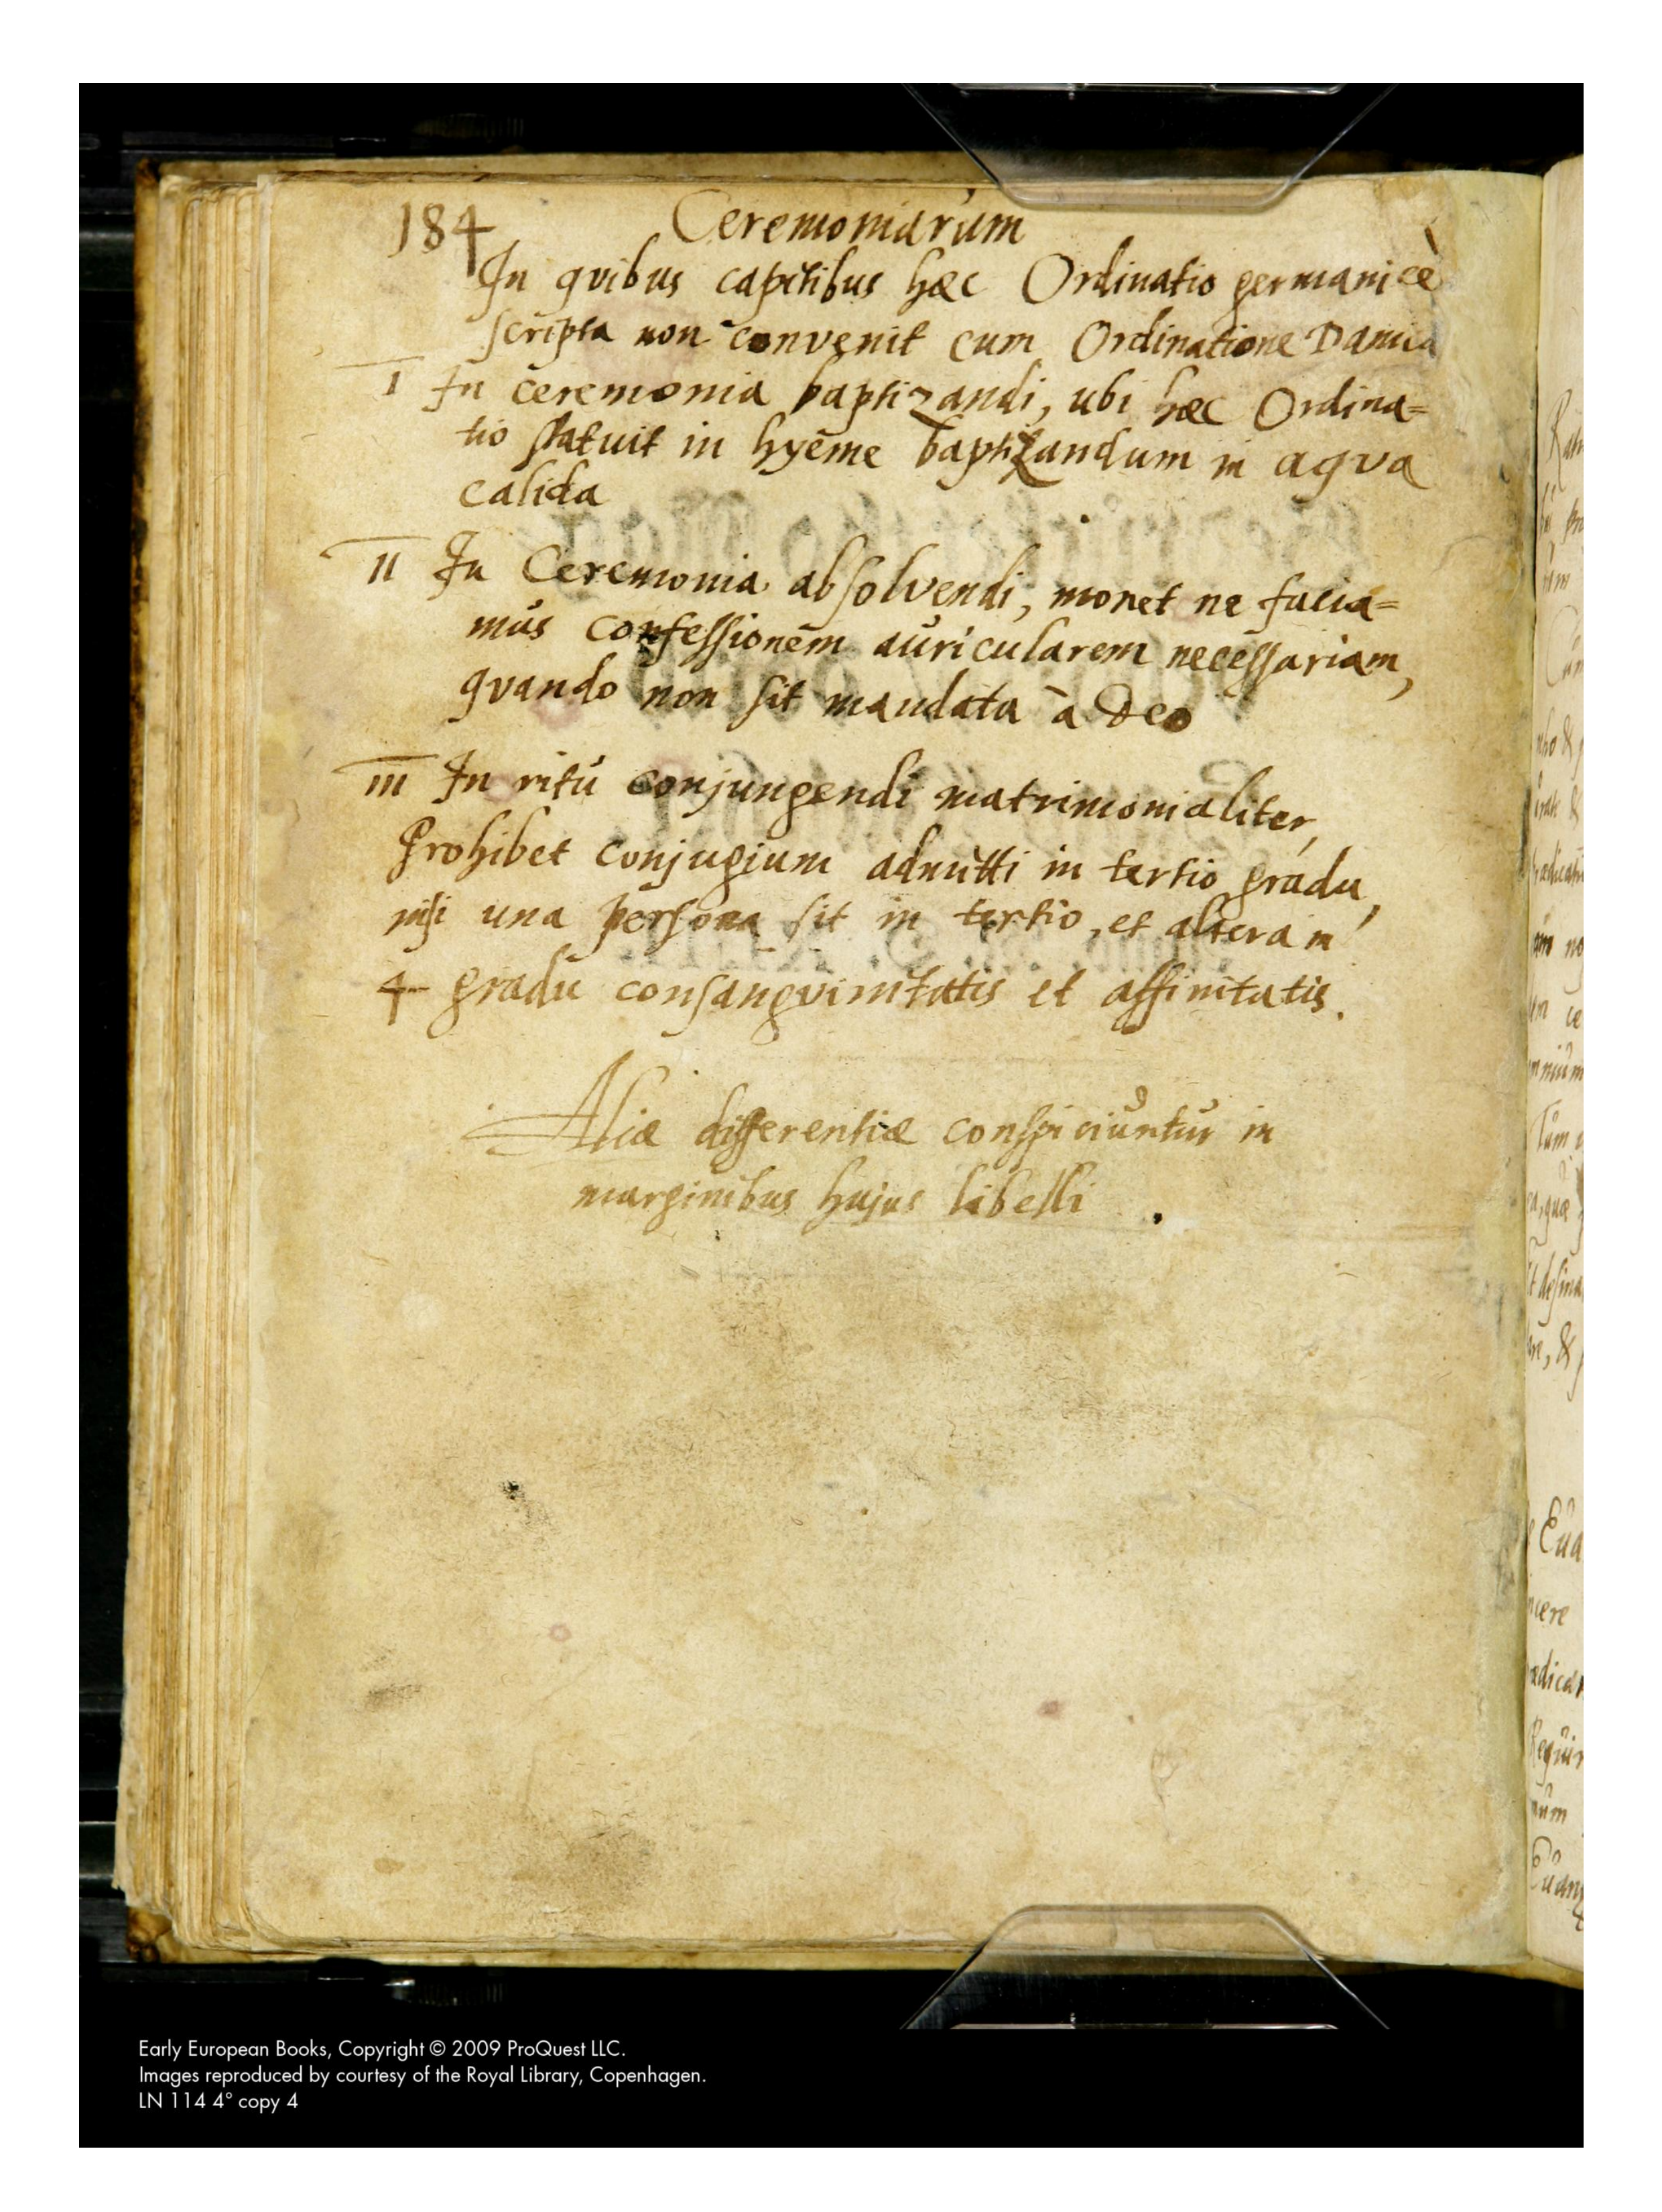 184 Ceremoniarum
In qvibus capitibus hæc Ordinatio germanicè
scripta non convenit cum Ordinatione Danica
I In ceremonia baptizandi, ubi hæc Ordina=
tio statuit in hyeme baptizandum in aqva
calida
II In Ceremonia absolvendi, monet ne facia=
mus confessionem auricularem necessariam,
qvando non sit mandata à Deo
III In ritu conjungendi matrimonialiter,
Prohibet conjugium admitti in tertio gradu,
nisi una persona sit in tertio, et altera in
4 gradu consangvinitatis et affinitatis.
Aliæ differentiæ conspiciuntur in
marginibus hujus libelli.
Early European Books, Copyright © 2009 ProQuest LLC.
Images reproduced by courtesy of the Royal Library, Copenhagen.
LN 114 4° copy 4